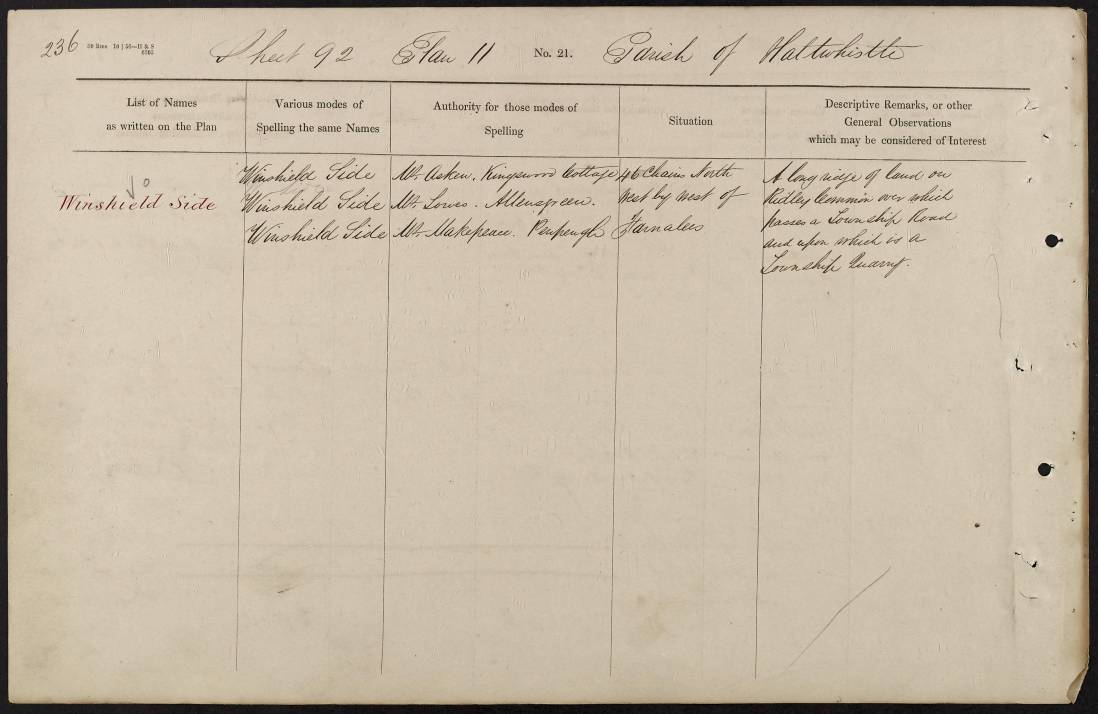 236 50 Rms 10 | 56—H & S Sheet 92 Plan 11 No. 21. Parish of Haltwhistle
6263
List of Names
as written on the Plan
Various modes of
Spelling the same Names
Authority for those modes of
Spelling
Situation
Descriptive Remarks, or other
General Observations
which may be considered of Interest
Winshield Side
Winshield Side
Winshield Side
Winshield Side
Mr. Asken. Kingswood Cottage
Mr. Lowes. Allensgreen.
Mr. Makepeace. Penpeugh
46 Chains North
West by West of
Farnalees
A long ridge of land on
Ridley Common over which
Passes a Township Road
and upon which is a
Township Quarry.